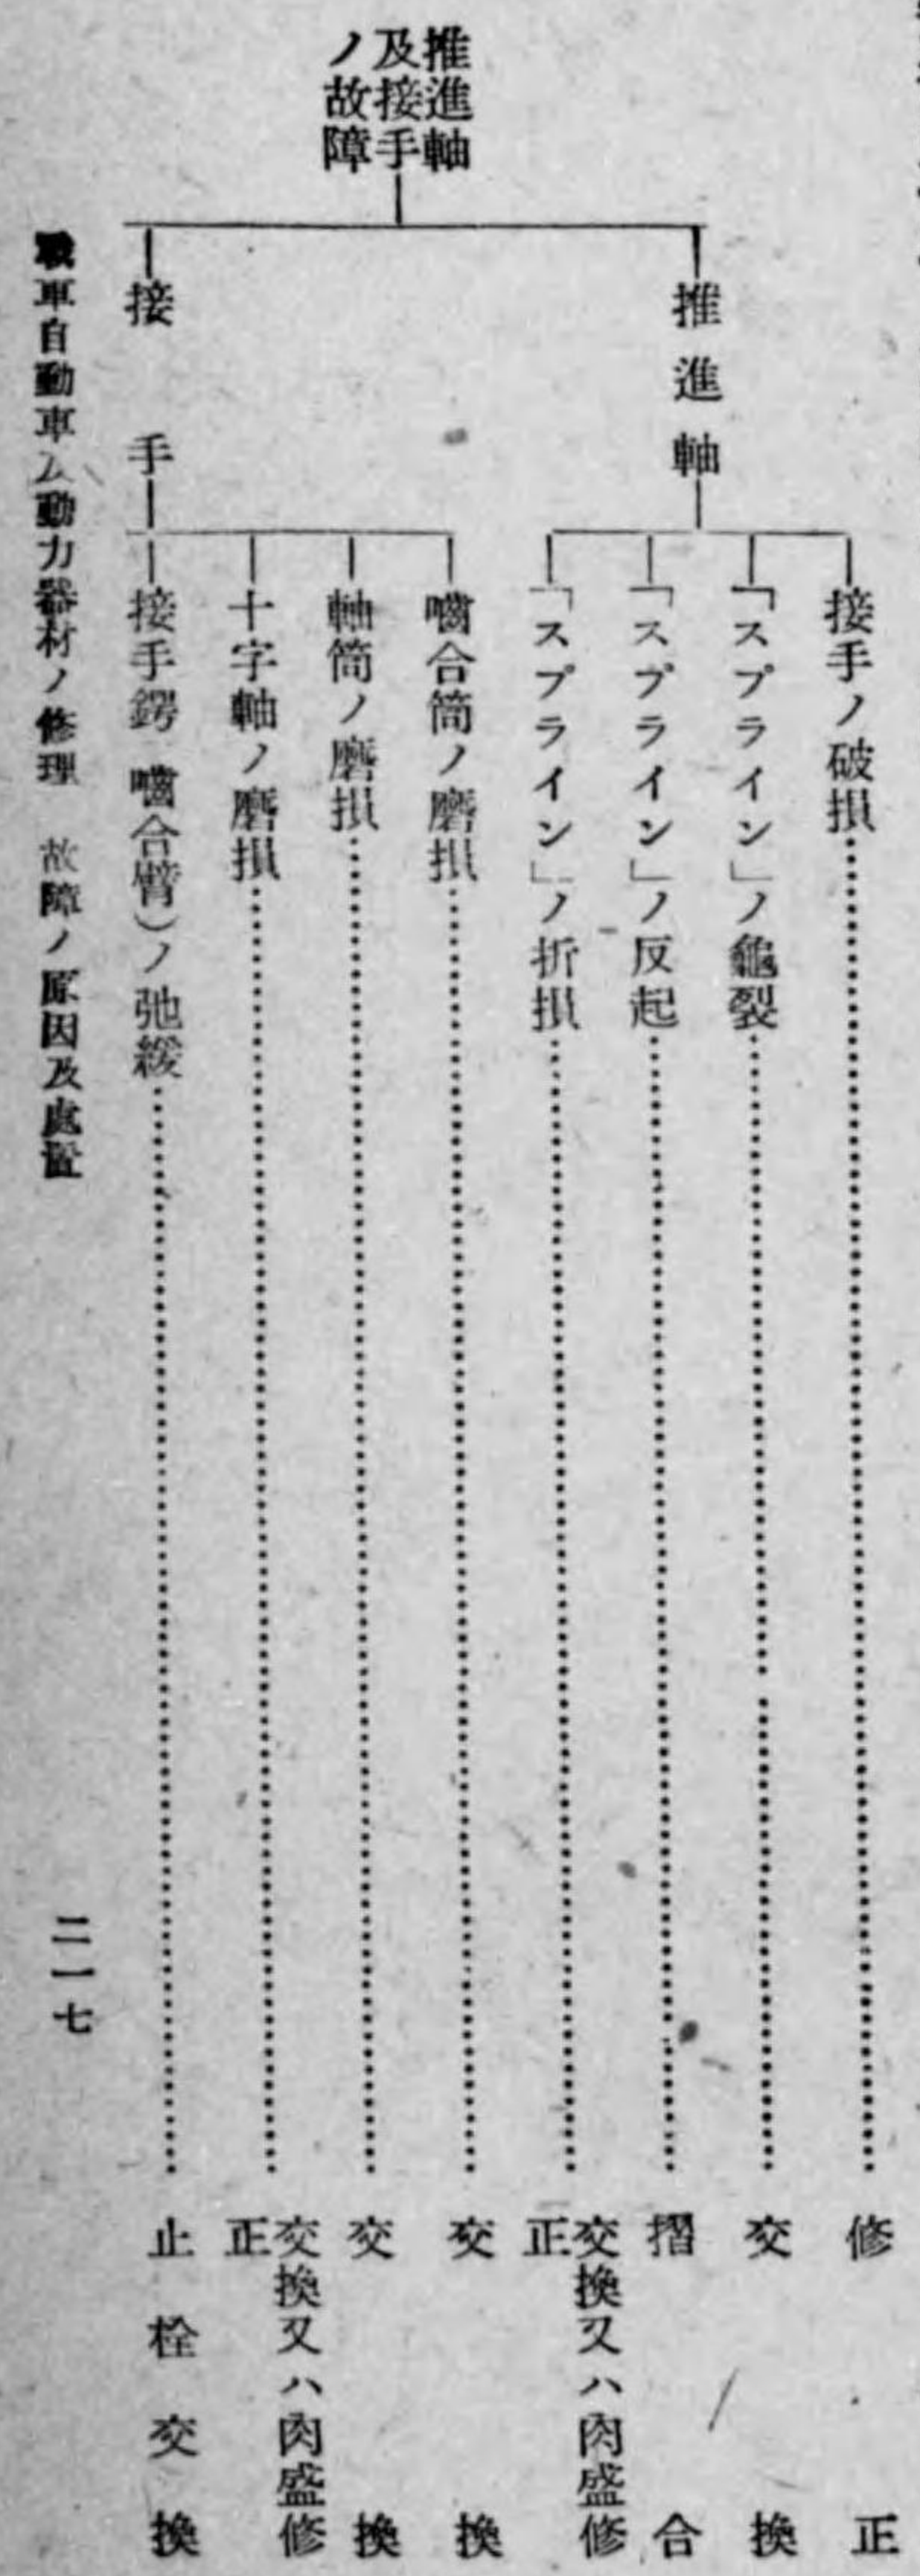 推進軸
及接手
ノ故障
推進軸
接手ノ破損……修正
「スプライン」ノ龜裂……交換
「スプライン」ノ反起……摺合
「スプライン」ノ折損……交換又ハ肉盛修
正
接手
嚙合筒ノ磨損……交換
軸筒ノ磨損……交換
十字軸ノ磨損……交換又ハ肉盛修
正
接手鍔 嚙合臂)ノ弛緩……止栓交換
戰車自動車及動力器材ノ修理 故障ノ原因及處置
二一七